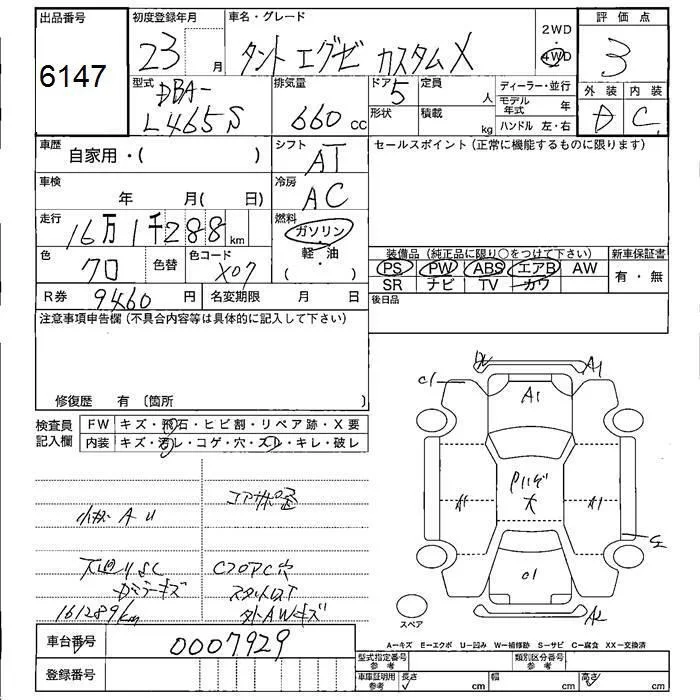 出品番号
6147
初度登録年月
23 月
車名・グレード
タント エグゼ カスタムX
2WD
・
4WD
評価点
3
型式
DBA-
L465S
排気量
660 cc
ドア
5
定員
人
形状
積載
kg
ディーラー・並行
モデル年式 年
ハンドル 左・右
外装 内装
D C
車歴
自家用・( )
シフト
AT
セールスポイント (正常に機能するものに限ります)
車検
年 月( 日)
冷房
AC
走行
16万1千288km
燃料
ガソリン
・
軽・油
( )
色
クロ
色替
色コード
X07
装備品 (純正品に限り○をつけて下さい)
PS PW ABS エアB AW
SR ナビ TV カワ
新車保証書
有・無
R券 9460円
名変期限 月 日
後日品
注意事項申告欄 (不具合内容等は具体的に記入して下さい)
修復歴 有 〔箇所
検査員
記入欄
FW キズ・飛石・ヒビ割・リペア跡・X要
内装 キズ・汚レ・コゲ・穴・スレ・キレ・破レ
小キズ A U
下廻りSC
Dミラーキズ
161289km
CフロアC穴
外AWキズ
C1
A1
A1
A1
C1
A2
スペア
A－キズ E－エクボ U－凹み W－補修跡 S－サビ C－腐食 XX－交換済
車台番号
0007929
登録番号
型式指定番号
参考
類別区分番号
参考
車庫証明用
参考
長さ cm
幅 cm
高さ cm